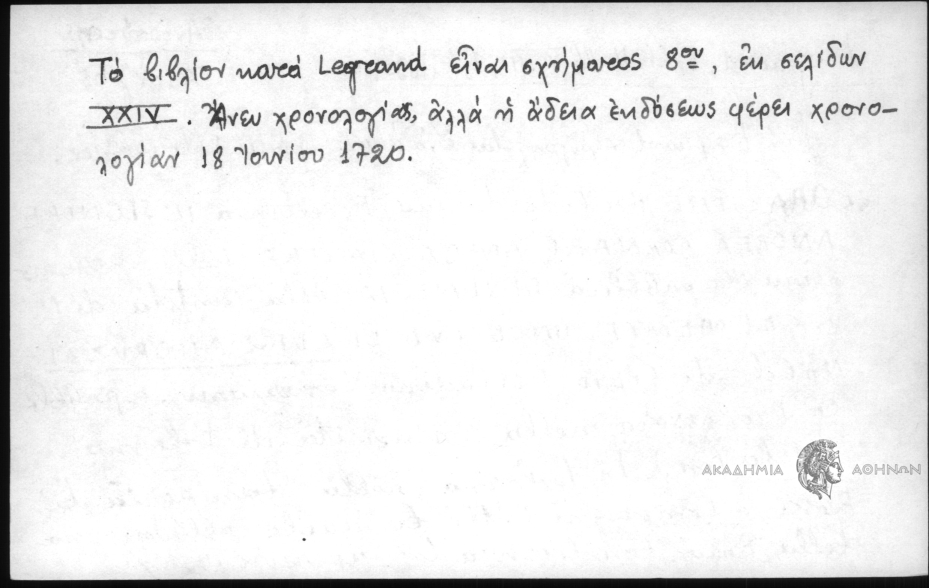 Τό βιβλίον κατά Legrand εἶναι σχήματος 8ου, ἐκ σελίδων
XXIV. Ἄνευ χρονολογίας, ἀλλά ἡ ἄδεια ἐκδόσεως φέρει χρονο-
λογίαν 18 Ἰουνίου 1720.
ΑΚΑΔΗΜΙΑ ΑΘΗΝΩΝ